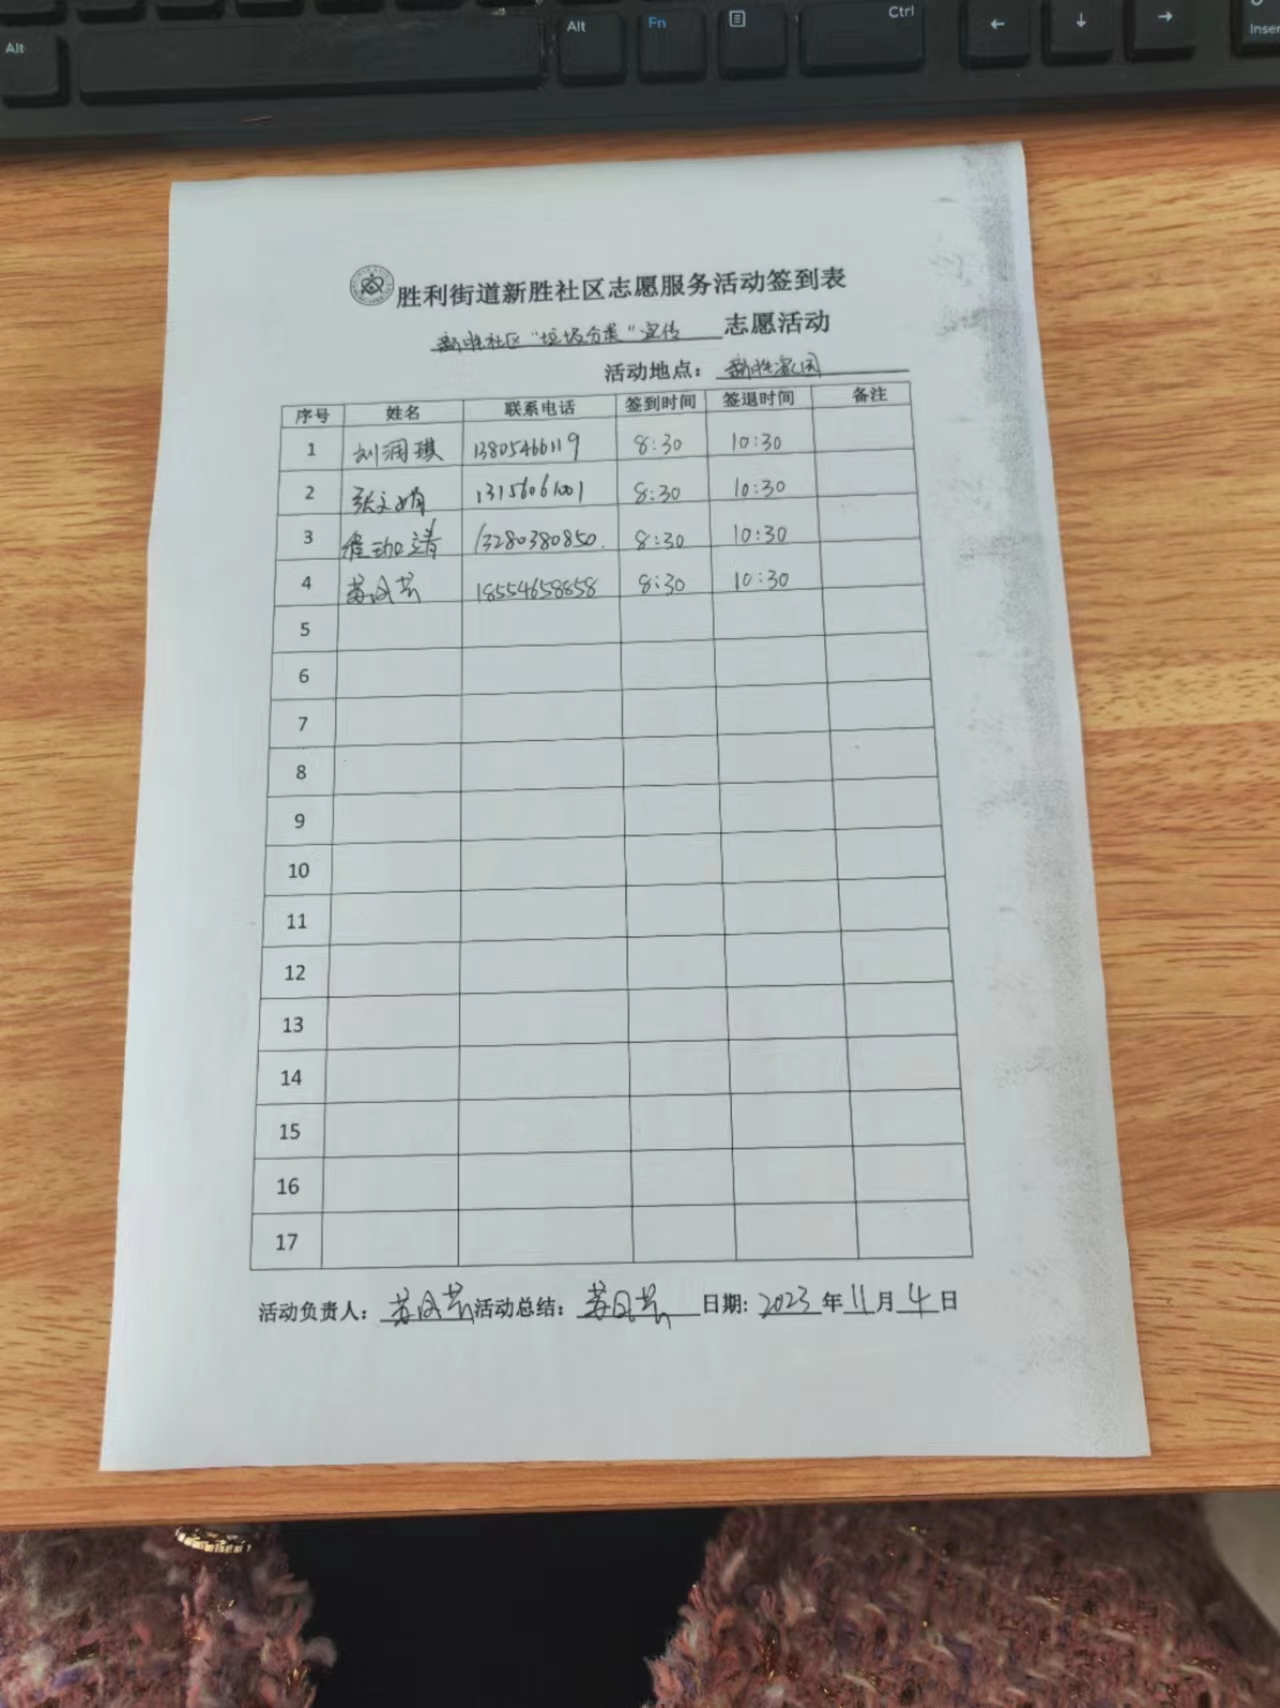 Alt
Alt
Fn
Ctrl
←
↓
→
Inser
胜利街道新胜社区志愿服务活动签到表
新胜社区“垃圾分类”宣传 志愿活动
活动地点： 新胜家园
序号 姓名 联系电话 签到时间 签退时间 备注
1 刘润琪 13805466119 8:30 10:30
2 张文娟 13156061001 8:30 10:30
3 程珈清 13280380850. 8:30 10:30
4 苏凤芸 18554658858 8:30 10:30
5
6
7
8
9
10
11
12
13
14
15
16
17
活动负责人： 苏凤芸 活动总结： 苏凤芸 日期: 2023 年 11 月 4 日